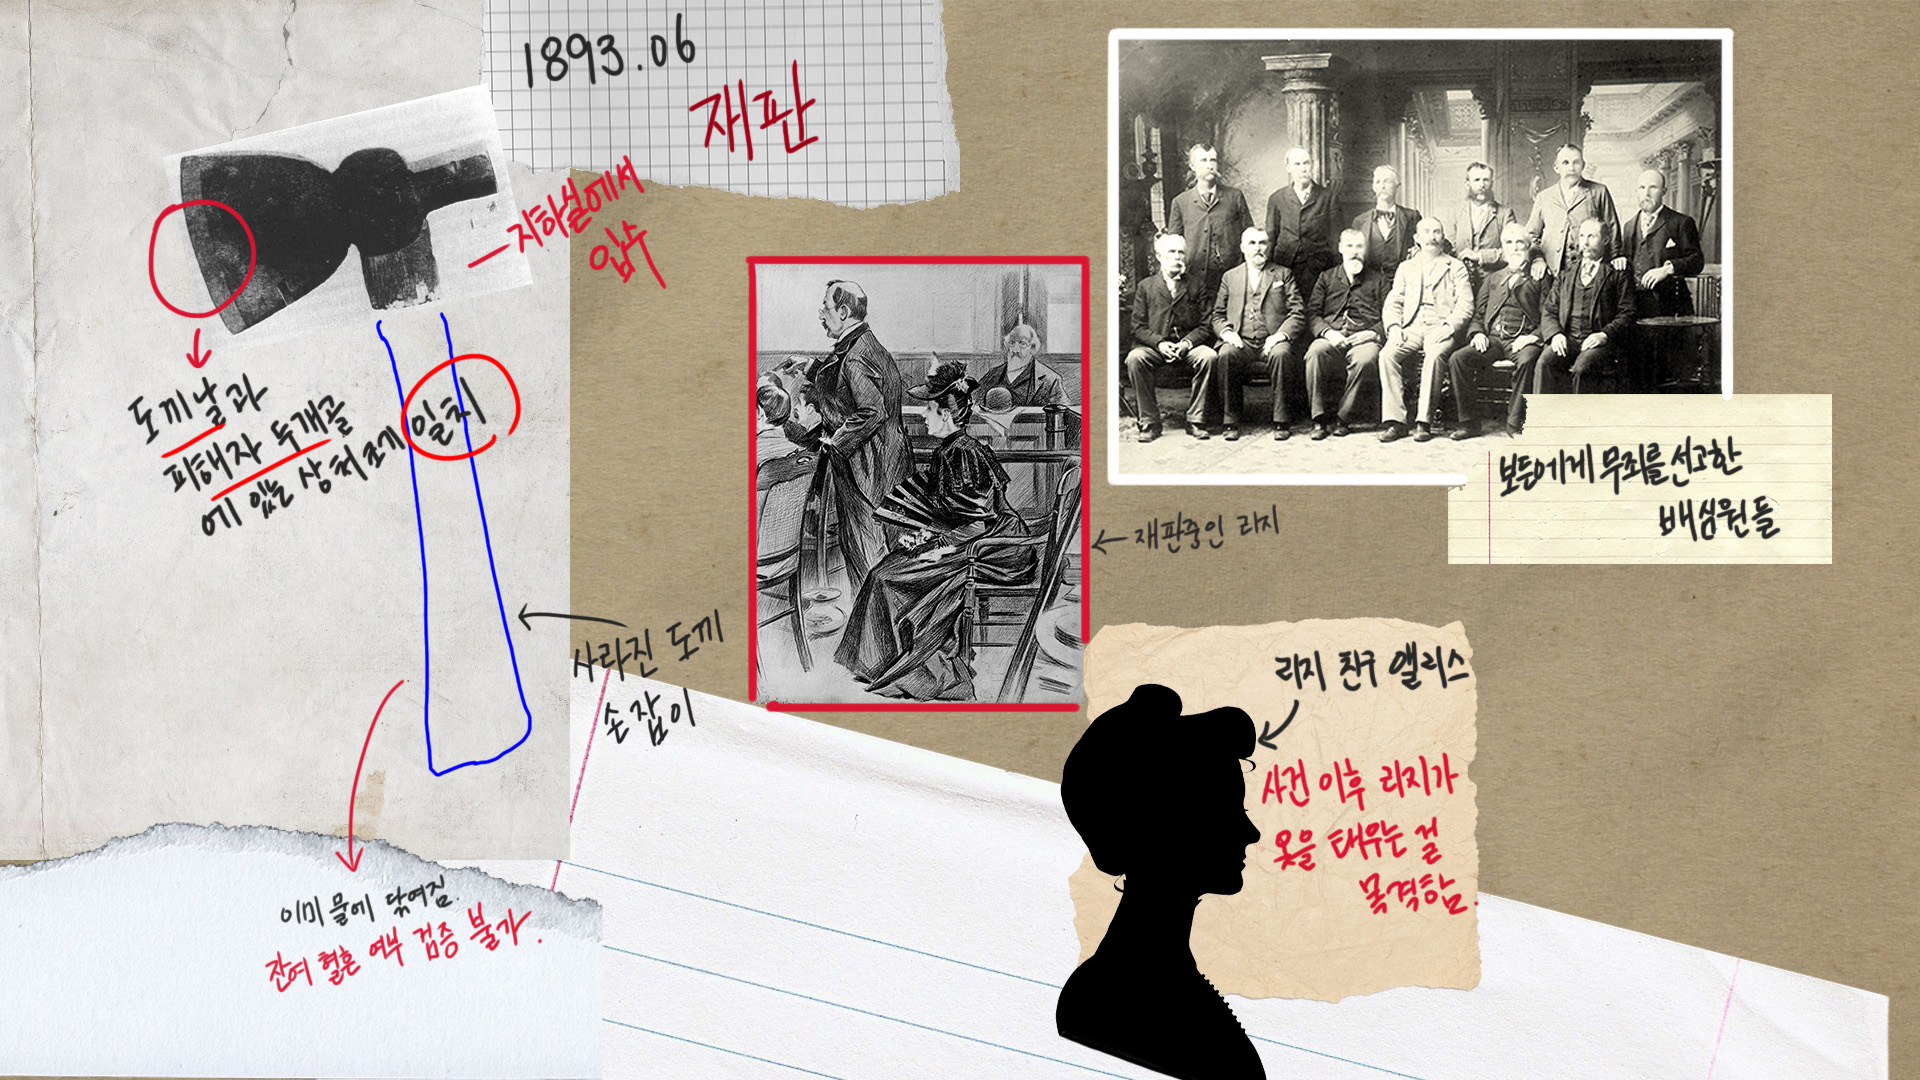 1893.06
재판
지하실에서
입수
도끼날과
피해자 두개골
에 있는 상처 크게 일치
사라진 도끼
손잡이
이미 물에 닦여짐.
잔여 혈흔 여부 검증 불가.
재판중인 리지
보든에게 무죄를 선고한
배심원들
리지 친구 앨리스
사건 이후 리지가
옷을 태우는 걸
목격함.